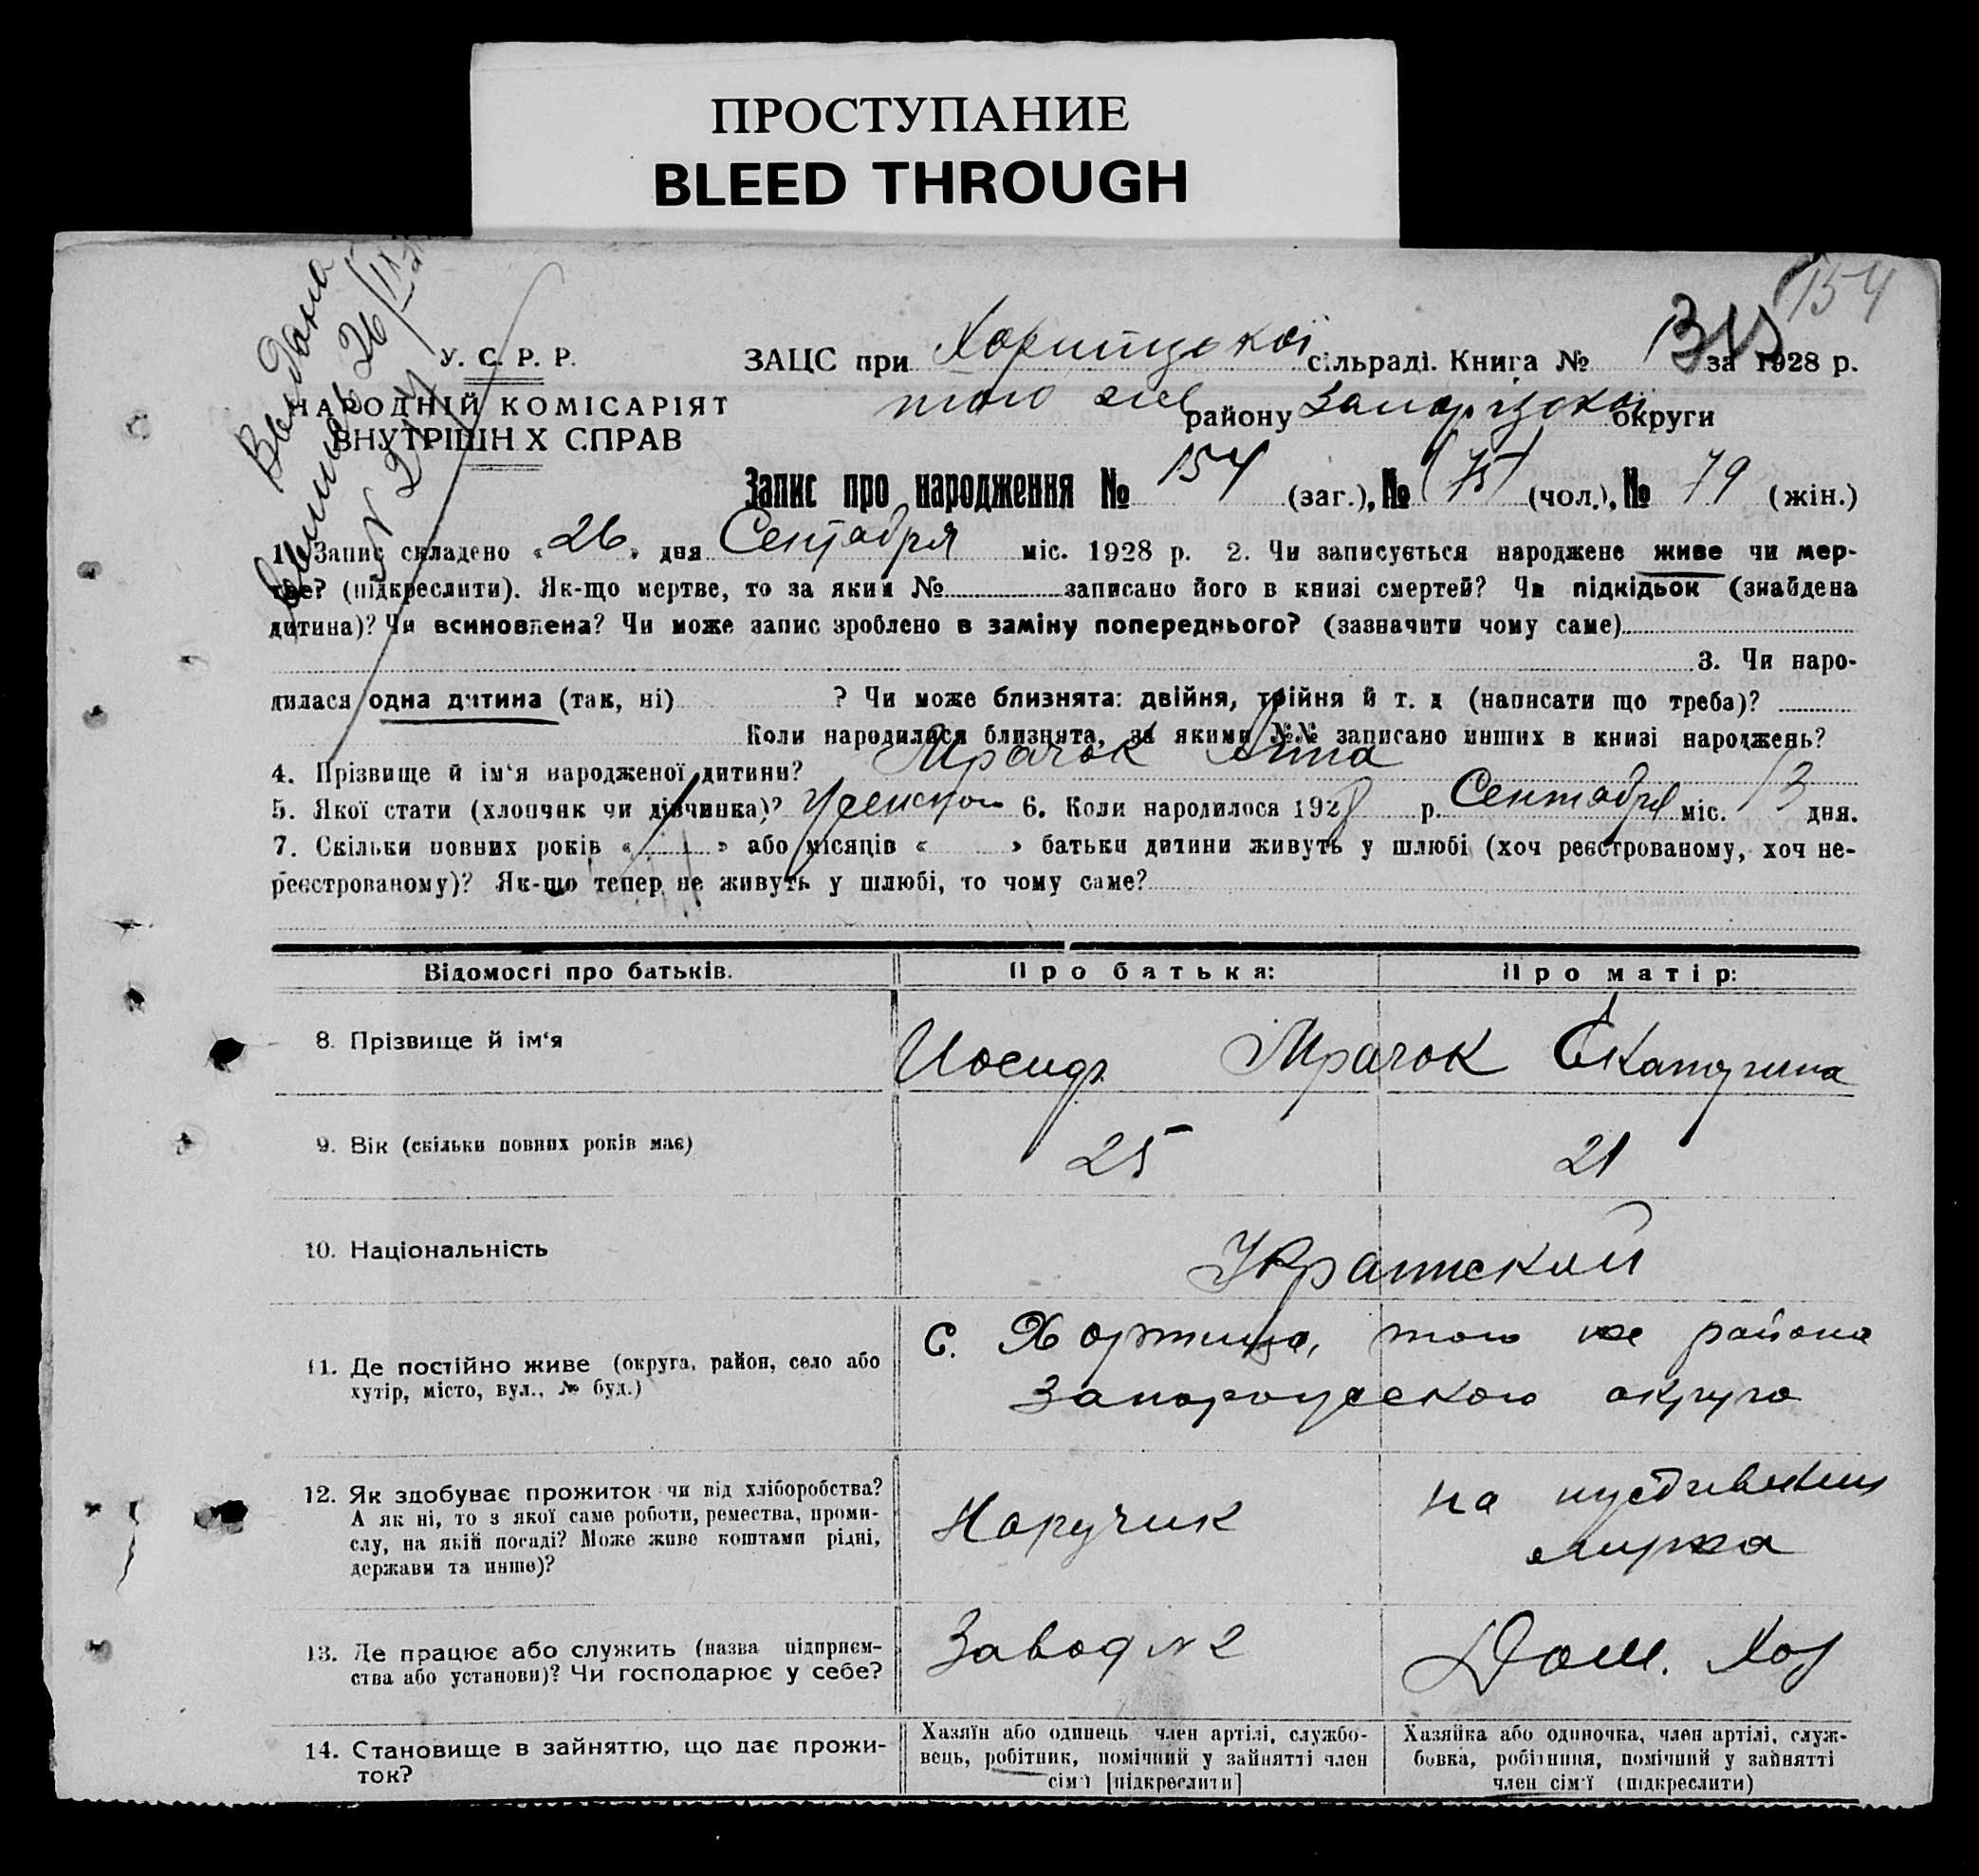 ПРОСТУПАНИЕ
BLEED THROUGH
154
Выдана
26/IX
У. С. Р. Р.
НАРОДНІЙ КОМІСАРІЯТ
ВНУТРІШН Х СПРАВ
ЗАЦС при Хортицькой сільраді. Книга № за 1928 р.
того же району Запорізької округи
Запис про народження № 154 (заг.), № 75 (чол.), № 79 (жін.)
1. Запис складено «26» дня Сентября міс. 1928 р. 2. Чи записується народжене живе чи мер-
тве? (підкреслити). Як-що мертве, то за яким № записано його в книзі смертей? Чи підкідьок (знайдена
дитина)? Чи всиновлена? Чи може запис зроблено в заміну попереднього? (зазначити чому саме)
3. Чи наро-
дилася одна дитина (так, ні) ? Чи може близнята: двійня, трійня й т. д (написати що треба)?
Коли народилися близнята, за якими №№ записано инших в книзі народжень?
4. Прізвище й ім‘я народженої дитини? Мрачок Анна
5. Якої стати (хлопчик чи дівчинка)? Женского 6. Коли народилося 1928 р. Сентября міс. 13 дня.
7. Скільки повних років « » або місяців « » батьки дитини живуть у шлюбі (хоч реєстрованому, хоч не-
реєстрованому)? Як-що тепер не живуть у шлюбі, то чому саме?
Відомості про батьків. Про батька: Про матір:
8. Прізвище й ім‘я Иосиф Мрачок Екатерина
9. Вік (скільки повних років має) 25 21
10. Національність Украинский
11. Де постійно живе (округа, район, село або
хутір, місто, вул., № буд.)
С. Хортица, того же района
Запорожского округа
12. Як здобуває прожиток чи від хліборобства?
А як ні, то з якої саме роботи, ремества, проми-
слу, на якій посаді? Може живе коштами рідні,
держави та инше)?
на иждивении
мужа
13. Де працює або служить (назва підприєм-
ства або установи)? Чи господарює у себе?
Завод № 2 Дом. Хоз
14. Становище в зайняттю, що дає прожи-
ток?
Хазяїн або одинець член артілі, службо-
вець, робітник, помічний у зайнятті член
сім‘ї [підкреслити]
Хазяйка або одиночка, член артілі, служ-
бовка, робітниця, помічний у зайнятті
член сім‘ї (підкреслити)